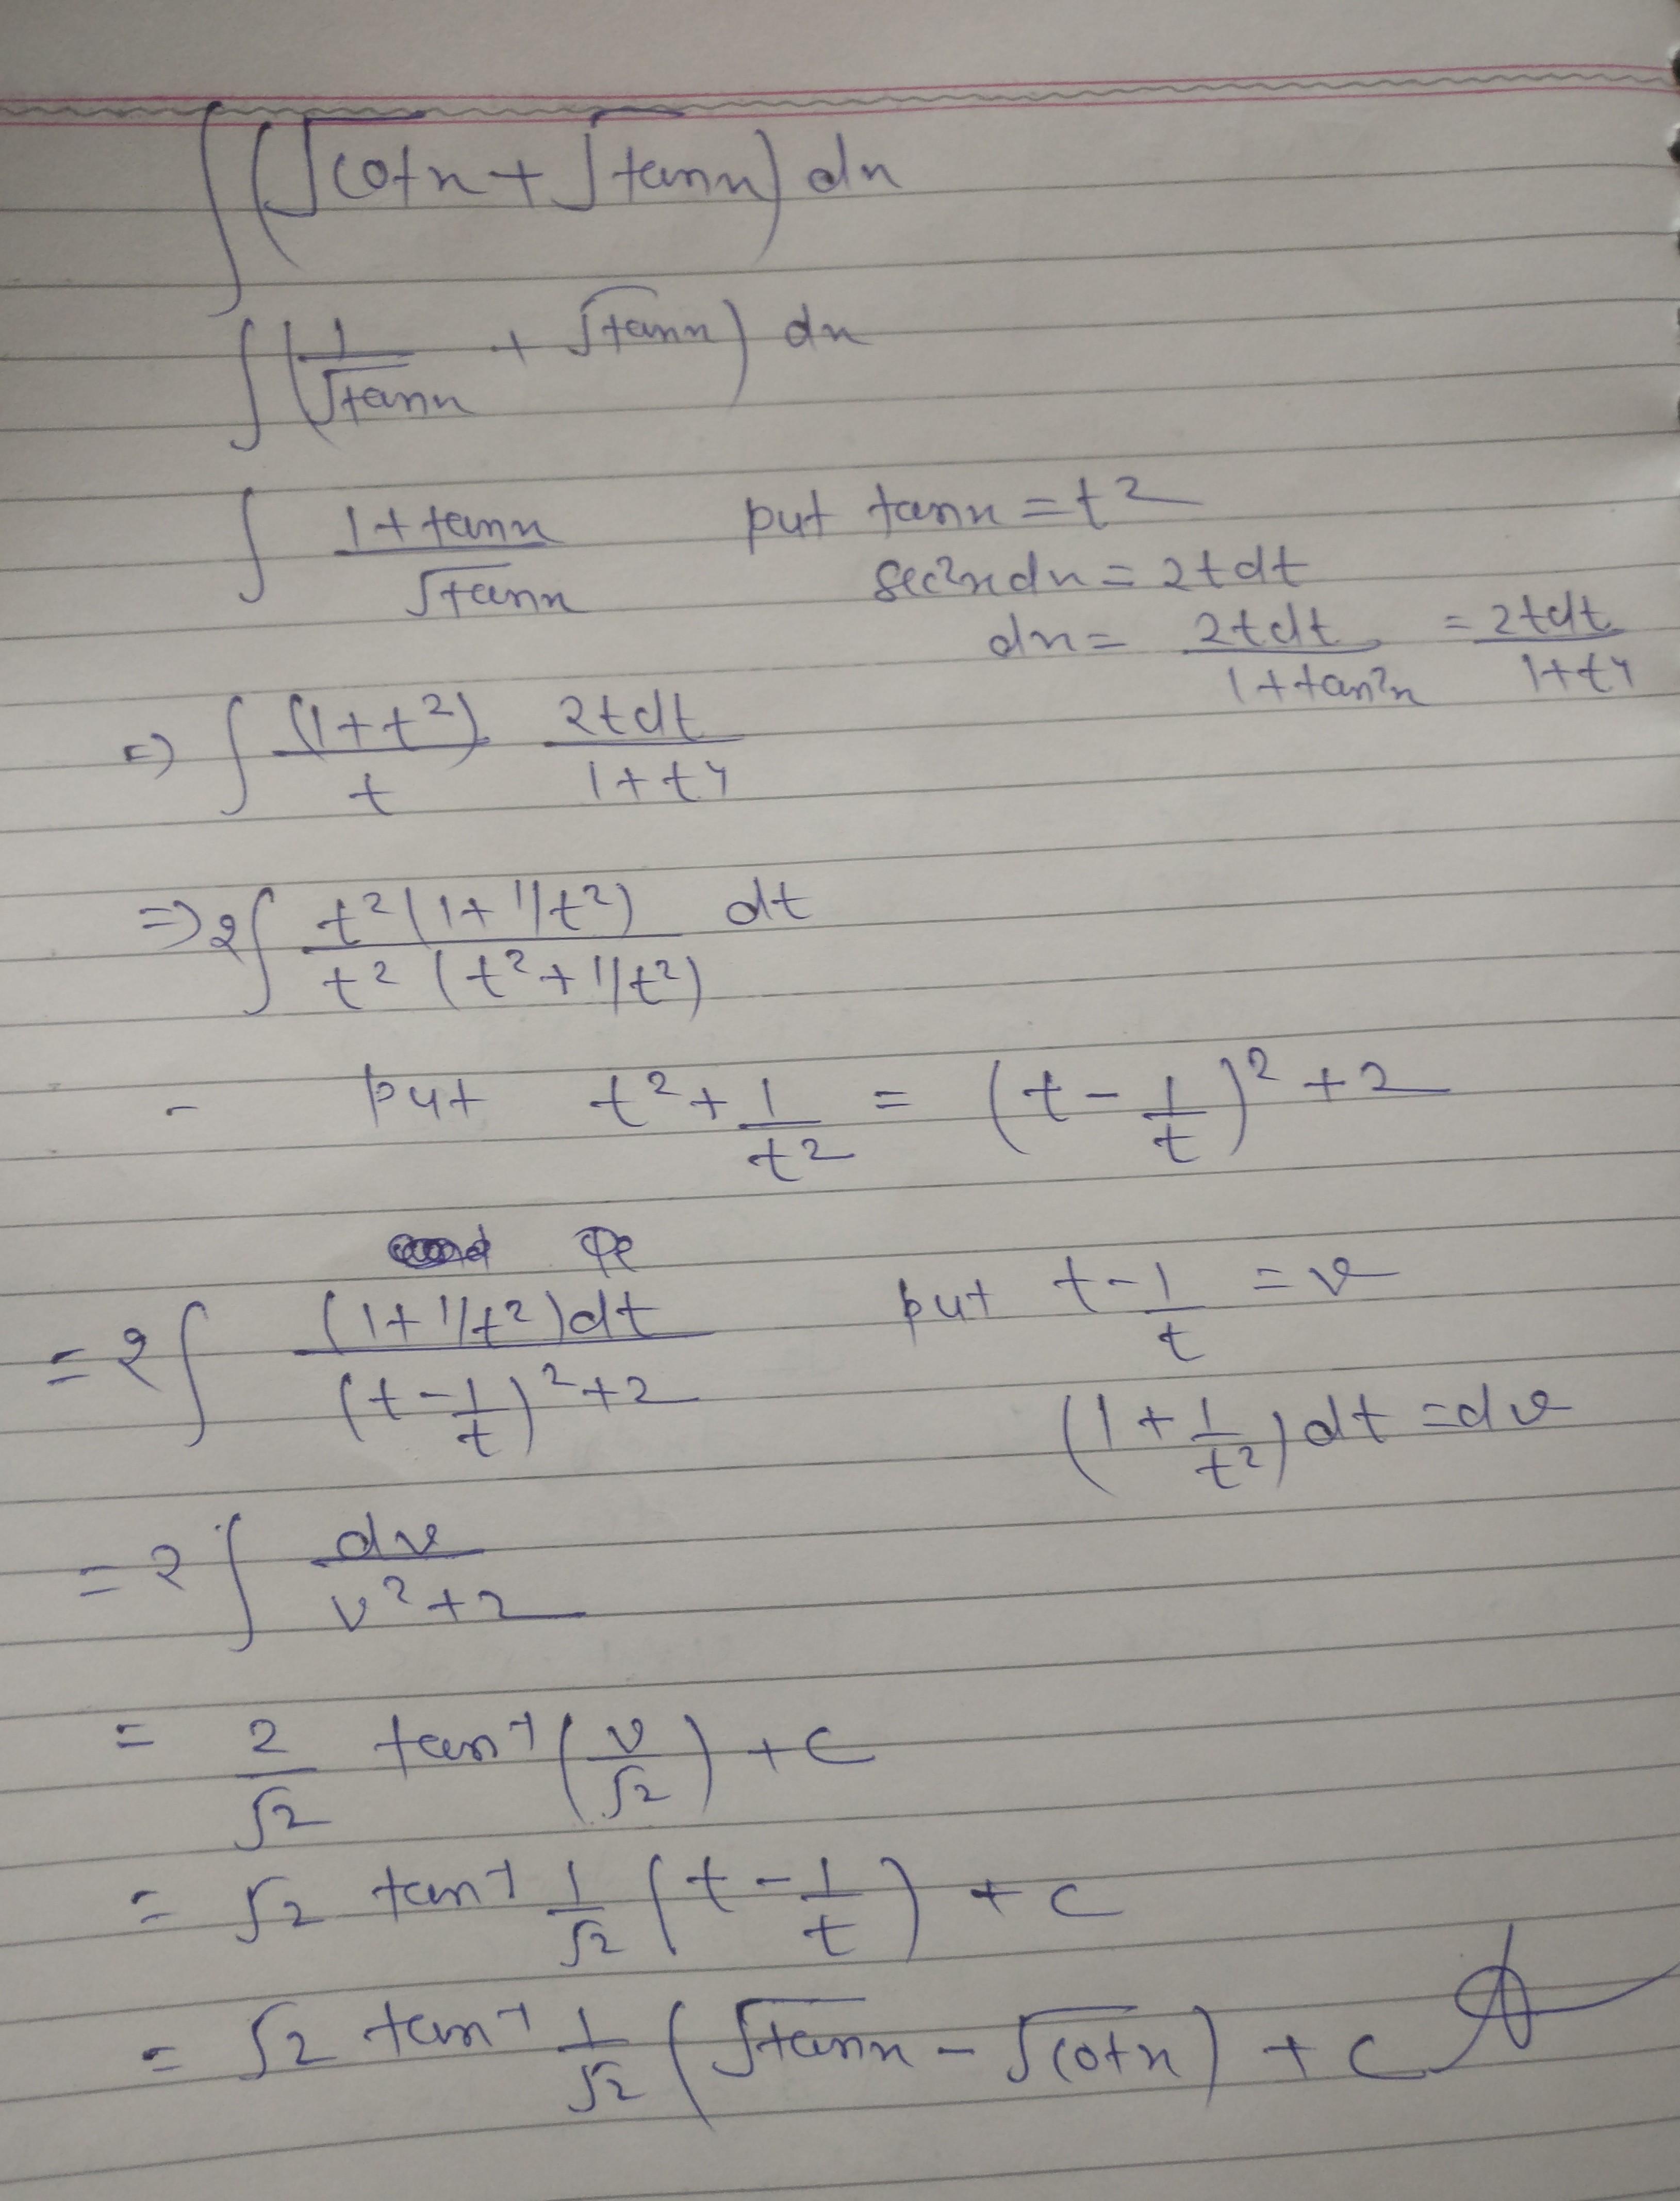 ∫(√cotx + √tanx) dx
∫(1/√tanx + √tanx) dx
∫ (1+tanx)/√tanx put tanx = t²
sec²x dx = 2t dt
dx = 2tdt/(1+tan²x) = 2tdt/(1+t⁴)
=> ∫ (1+t²)/t 2tdt/(1+t⁴)
=> 2∫ t²(1+1/t²)/(t²(t²+1/t²)) dt
- put t² + 1/t² = (t - 1/t)² + 2
= 2∫ (1+1/t²)dt/((t-1/t)²+2) put t - 1/t = v
(1 + 1/t²) dt = dv
= 2∫ dv/(v²+2)
= 2/√2 tan⁻¹(v/√2) + c
= √2 tan⁻¹ 1/√2 (t - 1/t) + c
= √2 tan⁻¹ 1/√2 (√tanx - √cotx) + c